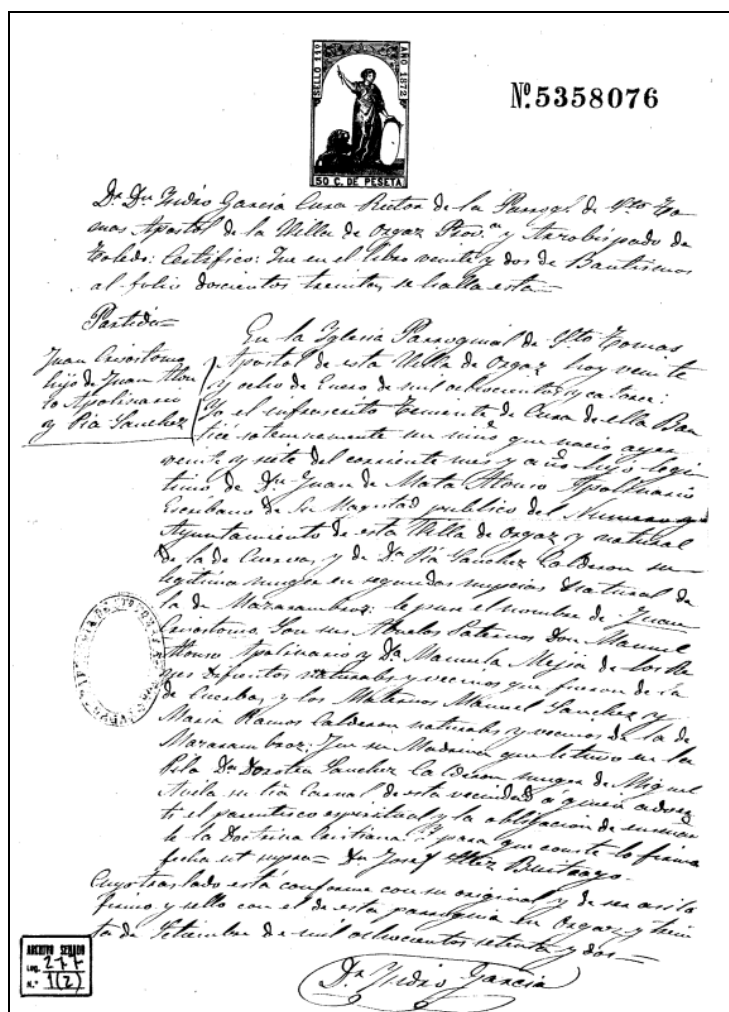 SELLO 11º
AÑO 1872
50 C. DE PESETA
Nº 5358076
Dr. Dn. Ysidro Garcia Cura Rector de la Parroql. de Sto. To-
mas Apostol de la Villa de Orgaz Prova. y Arzobispado de
Toledo: Certifico: Que en el libro veinte y dos de Bautismos
al folio doscientos treinta, se halla esta=
Partida=
Juan Crisostomo
hijo de Juan Alon
so Apolinario
y Pia Sanchez
En la Yglesia Parroquial de Sto. Tomas
Apostol de esta Villa de Orgaz hoy veinte
y ocho de Enero de mil ochocientos y catorce:
Yo el infrascrito Teniente de Cura de ella Bau
ticé solemnemente un niño que nacio ayer
veinte y siete del corriente mes y año hijo legi
timo de Dn. Juan de Mata Alonso Apolinario
Escribano de Su Magestad publico del Numero y
Ayuntamiento de esta Villa de Orgaz y natural
de la de Cuerva, y de Da. Pia Sanchez Calderon su
legitima muger en segundas nupcias natural de
la de Mazarambroz: le puse el nombre de Juan
Crisostomo. Son sus Abuelos Paternos Don Manuel
Alonso Apolinario y Da. Manuela Mejia de los Re
yes Difuntos naturales y vecinos que fueron de la
de Cuerba, y los Maternos Manuel Sanchez y
Maria Ramos Calderon naturales y vecinos de la de
Mazarambroz: Fue su Madrina que le tuvo en la
Pila Da. Dorotea Sanchez Calderon muger de Miguel
Avila su tia Carnal de esta vecindad á quien adver
ti el parentesco espiritual y la obligacion de enseñar
le la Doctrina Cristiana. Y para que conste lo firma
fecha ut supra= Dn. Josef Buitrago-
Cuyo traslado está conforme con su original y de ser asi lo
firmo y sello con el de esta parroquia en Orgaz y trein
ta de Setiembre de mil ochocientos setenta y dos=
Dr. Ysidro Garcia
ARCHIVO SENADO
LEG. 277
N.º 1(2)